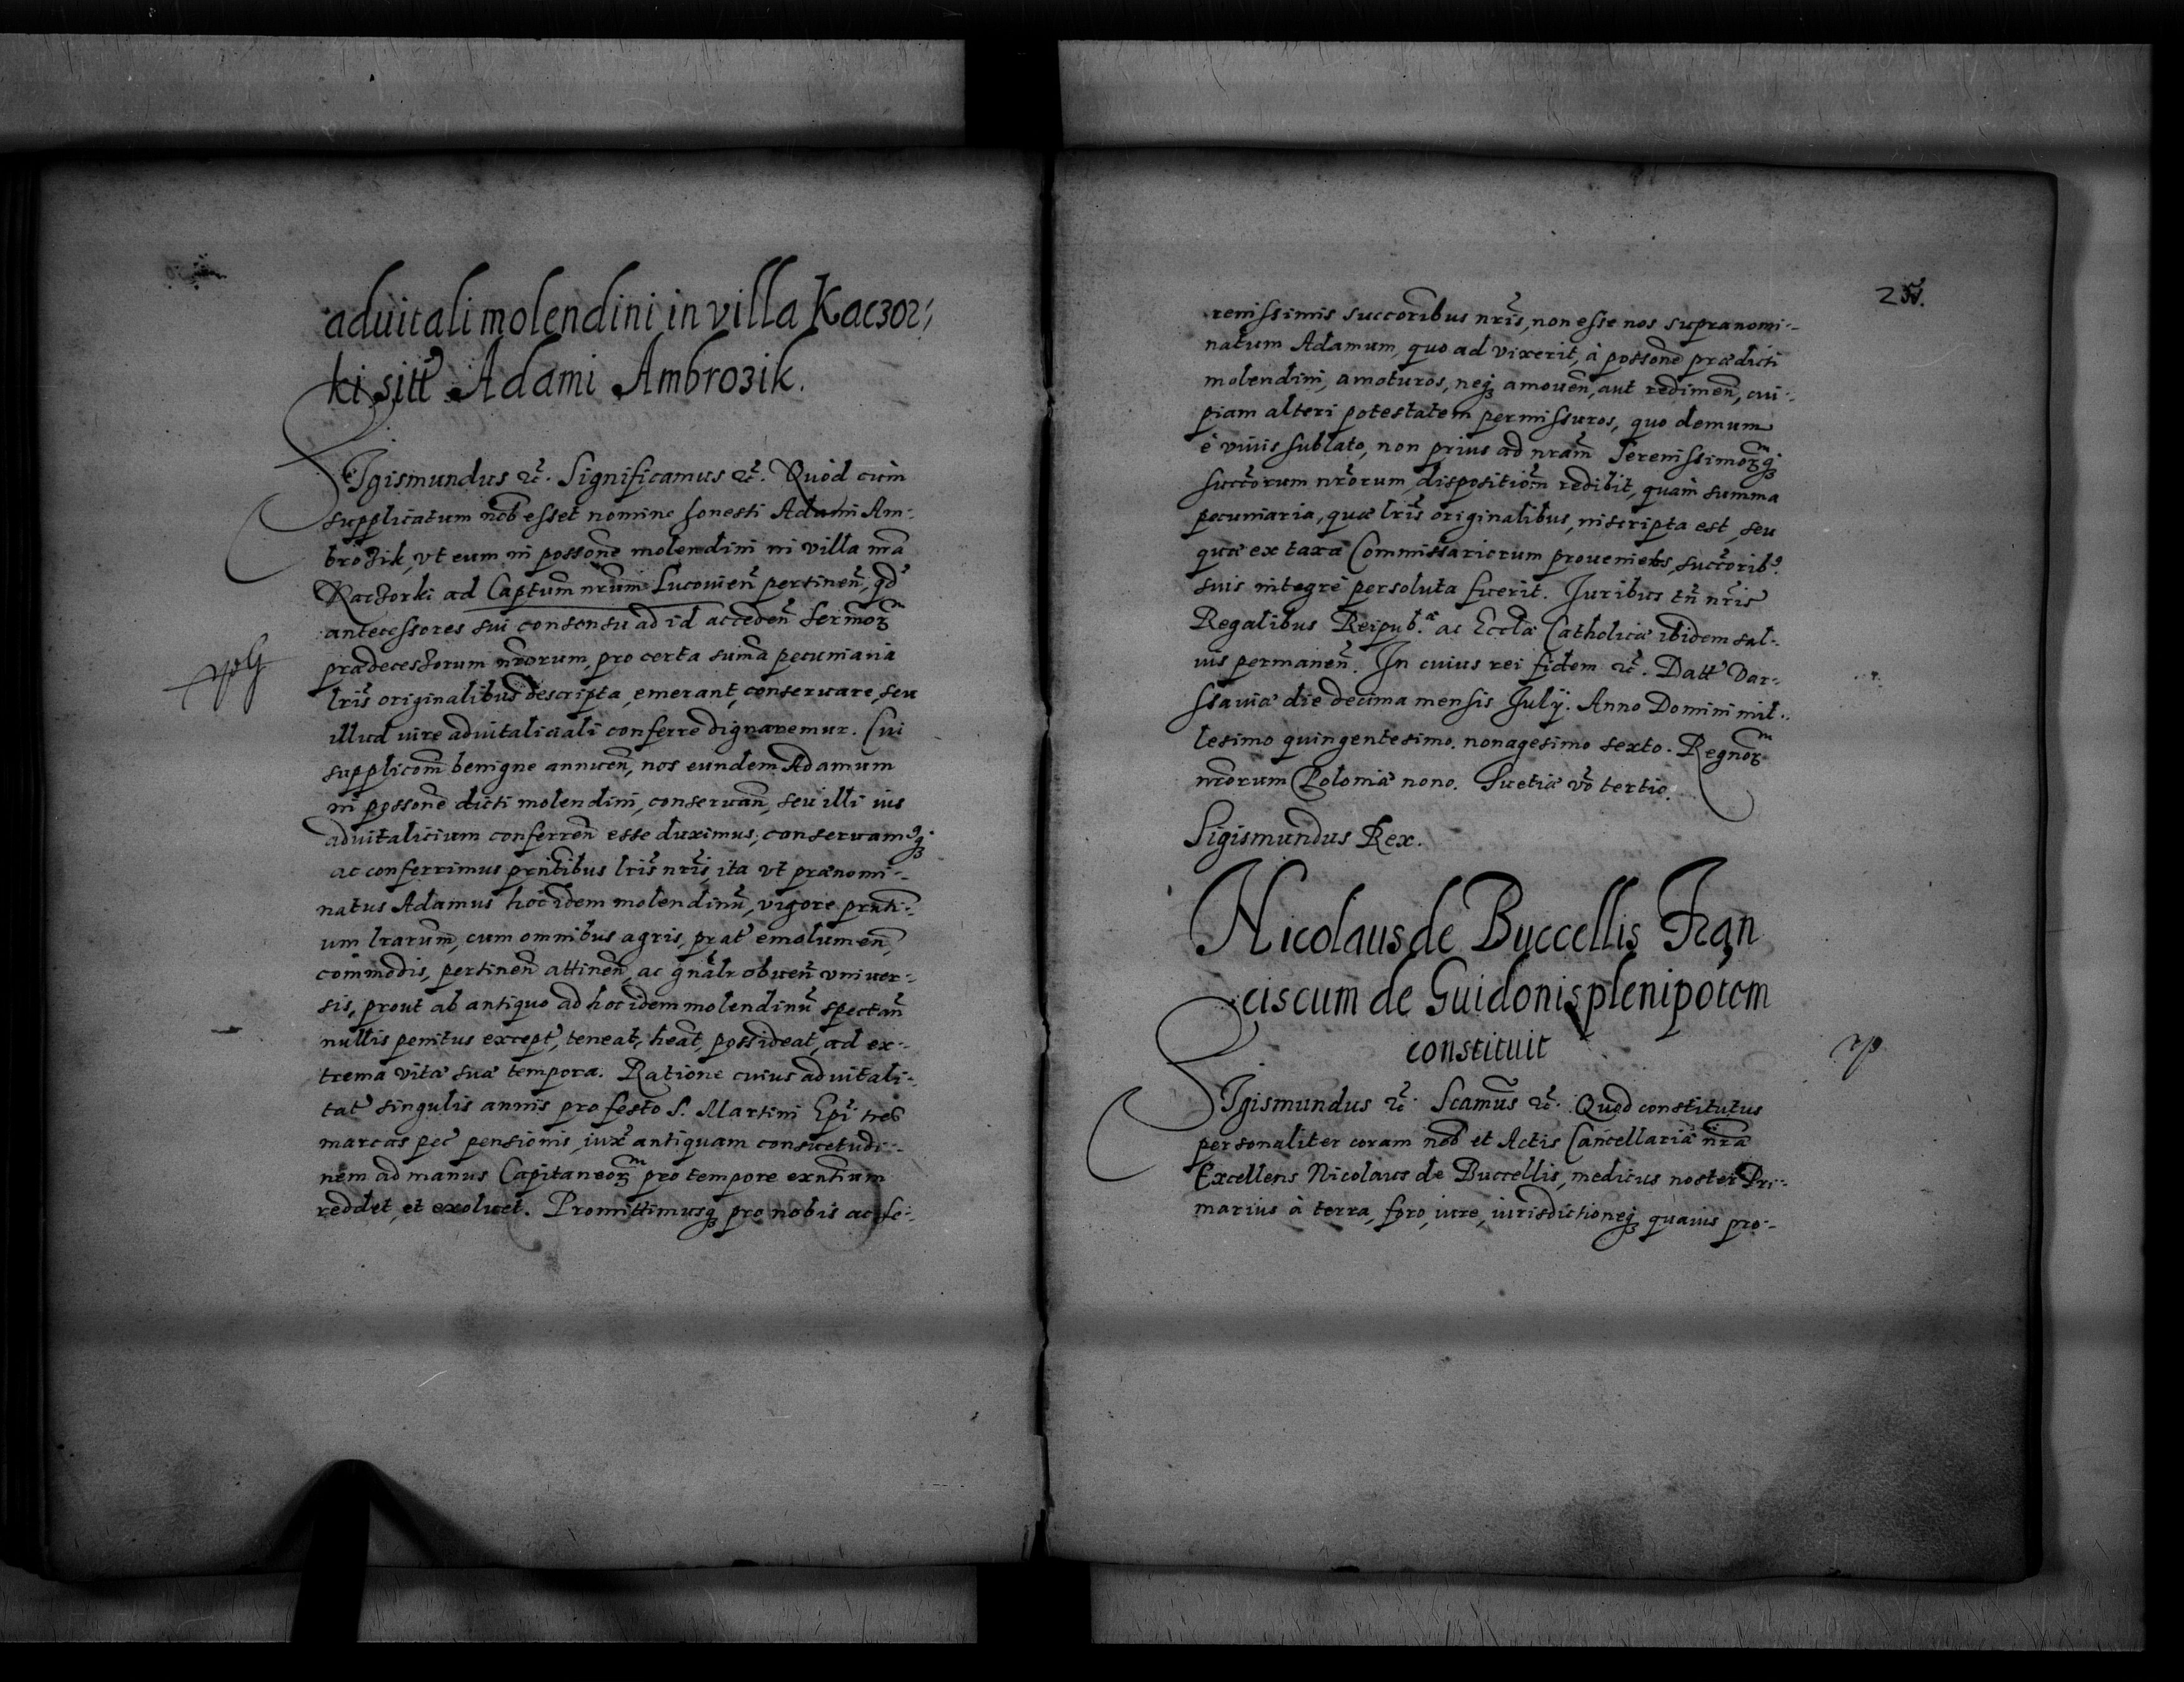 aduitali molendini in villa Kaczor⸗
ki sitt̃ Adami Ambrozik.
Sigismundus ꝛc̃. Significamus ꝛc̃. Quòd cùm
supplicatum nob̃ esset nomine honesti Adami Am⸗
brozik, vt eum in possone molendini in villa nrã
Kaczorki ad Captum nrum Lucouien̄ pertinen̄, qd̃
antecessores sui consensu ad id acceden̄ Sermoꝝ
prædecessorum nrorum, pro certa suma pecuniaria
lris̃ originalibus descripta, emerant, conseruare, seu
illud iure aduitaliciali conferre dignaremur. Cui
supplicoñi benigne annuen̄, nos eundem Adamum
in possone dicti molendini, conseruan̄, seu illi ius
aduitalicium conferren̄ esse duximus; conseruamꝰqꝫ
ac conferrimus prntibus lris̃ nris̃, ita vt prænomi⸗
natus Adamus hoc idem molendinũ, vigore prnti⸗
um lrarum, cum omnibus agris, prat̃ emolumen̄,
commodis, pertinen̄ attinen̄, ac gnãlr obuen̄ vniuer⸗
sis, prout ab antiquo ad hoc idem molendinũ spectan̄
nullis penitus except̃, teneat, heat̃, possideat, ad ex⸗
trema vitæ suæ tempora. Ratione cuius aduitali⸗
tat̃ singulis annis pro festo S. Martini Epĩ tres
marcas pec̃ pensionis, iux̃ antiquam consuetudi⸗
nem ad manus Capitaneoꝝ pro tempore exñtium
reddet, et exoluet. Promittimusqꝫ pro nobis ac se⸗
renissimis succoribus nris̃, non esse nos supranomi⸗
natum Adamum, quo ad vixerit, à possone prædicti
molendini, amoturos, neqꝫ amouen̄, aut redimen̄, cui⸗
piam alteri potestatem permissuros, quo demum
è viuis sublato, non prius ad nram̃ Serenissimoꝝqꝫ
succorum nrorum, disposition̄ redibit, quàm summa
pecuniaria, quæ lris̃ originalibus, inscripta est, seu
quæ ex taxa Commissariorum proueniens, succoribꝰ
suis integrè persoluta fuerit. Iuribus tñ nris̃
Regalibus Reipub.æ ac Eccla Catholicæ ibidem sal⸗
uis permanen̄. In cuius rei fidem ꝛc̃. Datt̃ Var⸗
ssauiæ die decima mensis Iulÿ. Anno Domini mil⸗
lesimo quingentesimo. nonagesimo sexto. Regnoꝝ
nrorum Poloniæ nono. Suetiæ vo tertio.
Sigismundus Rex.
Nicolaus de Buccellis Fran
ciscum de Guidonis plenipotem
constituit
Sigismundus ꝛc̃. Scamus̃ ꝛc̃. Quod constitutus
personaliter coram nob̃ et Actis Cancellariæ nrã
Excellens Nicolaus de Buccellis, medicus noster Pri⸗
marius à terra, foro, iure, iurisdictioneqꝫ quauis pro⸗